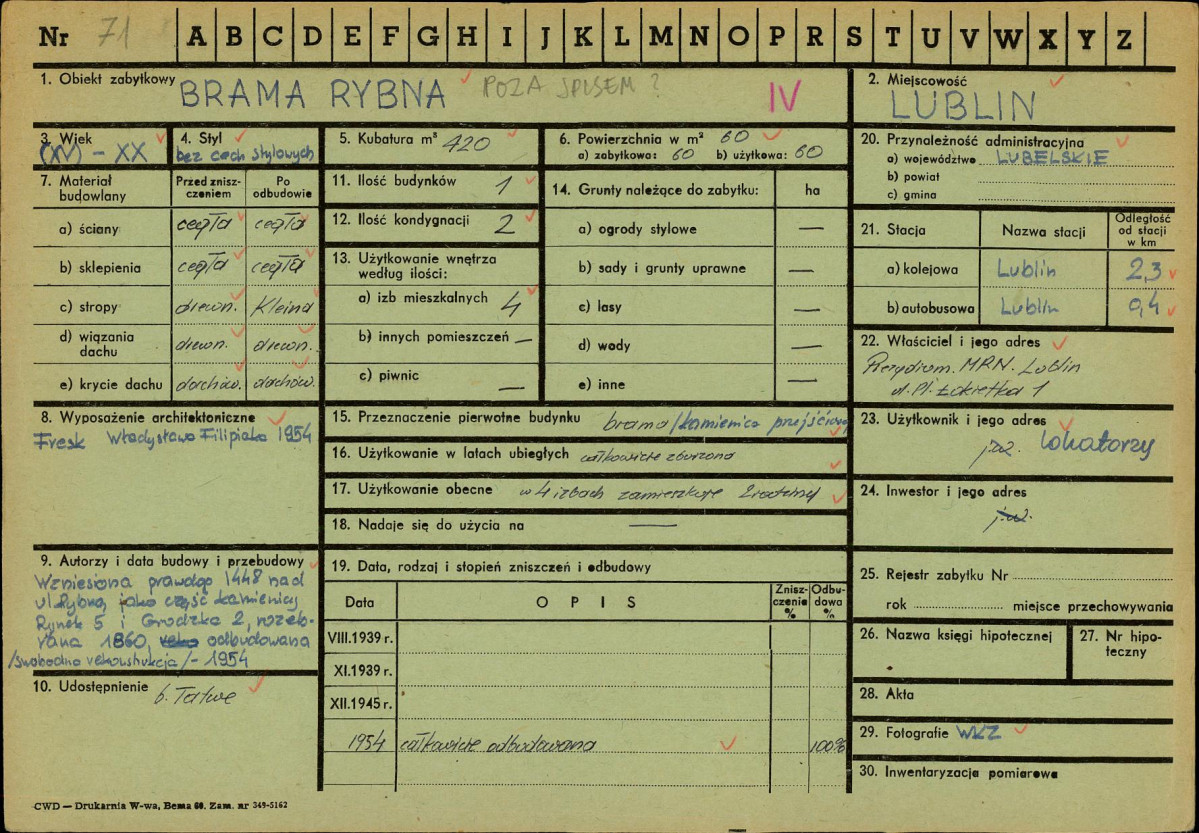 Nr 71 A B C D E F G H I J K L M N O P R S T U V W X Y Z
1. Obiekt zabytkowy BRAMA RYBNA POZA SPISEM ? IV
2. Miejscowość
LUBLIN
3. Wiek
(XV) - XX
4. Styl
bez cech stylowych
5. Kubatura m³ 420
6. Powierzchnia w m² 60
a) zabytkowa: 60 b) użytkowa: 60
20. Przynależność administracyjna
a) województwo LUBELSKIE
b) powiat
c) gmina
7. Materiał budowlany
Przed zniszczeniem
Po odbudowie
a) ściany cegła cegła
b) sklepienia cegła cegła
c) stropy drewn. Kleina
d) wiązania dachu drewn. drewn.
e) krycie dachu dachów. dachów.
11. Ilość budynków 1
12. Ilość kondygnacji 2
13. Użytkowanie wnętrza
według ilości:
a) izb mieszkalnych 4
b) innych pomieszczeń —
c) piwnic —
14. Grunty należące do zabytku: ha
a) ogrody stylowe —
b) sady i grunty uprawne —
c) lasy —
d) wody —
e) inne —
21. Stacja Nazwa stacji Odległość od stacji w km
a) kolejowa Lublin 2,3
b) autobusowa Lublin 0,4
22. Właściciel i jego adres
Prezydium. MRN. Lublin
ul. Pl. Łokietka 1
8. Wyposażenie architektoniczne
Fresk Władysława Filipiaka 1954
15. Przeznaczenie pierwotne budynku brama/kamienica przejściowa
16. Użytkowanie w latach ubiegłych całkowicie zburzona
17. Użytkowanie obecne w 4 izbach zamieszkuje 2 rodziny
18. Nadaje się do użycia na —
23. Użytkownik i jego adres
j.w. lokatorzy
24. Inwestor i jego adres
j.w.
9. Autorzy i data budowy i przebudowy
Wzniesiona prawdop 1448 nad
ul Rybną, jako część kamienicy
Rynek 5 i Grodzka 2, rozeb-
rana 1860, odbudowana
/swobodna rekonstrukcja/- 1954
10. Udostępnienie b. łatwe
19. Data, rodzaj i stopień zniszczeń i odbudowy
Data OPIS Zniszczenie % Odbudowa %
VIII.1939 r.
XI.1939 r.
XII.1945 r.
1954 całkowicie odbudowana 100%
25. Rejestr zabytku Nr
rok miejsce przechowywania
26. Nazwa księgi hipotecznej
27. Nr hipoteczny
28. Akta
29. Fotografie WKZ
30. Inwentaryzacja pomiarowa
CWD — Drukarnia W-wa, Bema 60. Zam. nr 349-5162